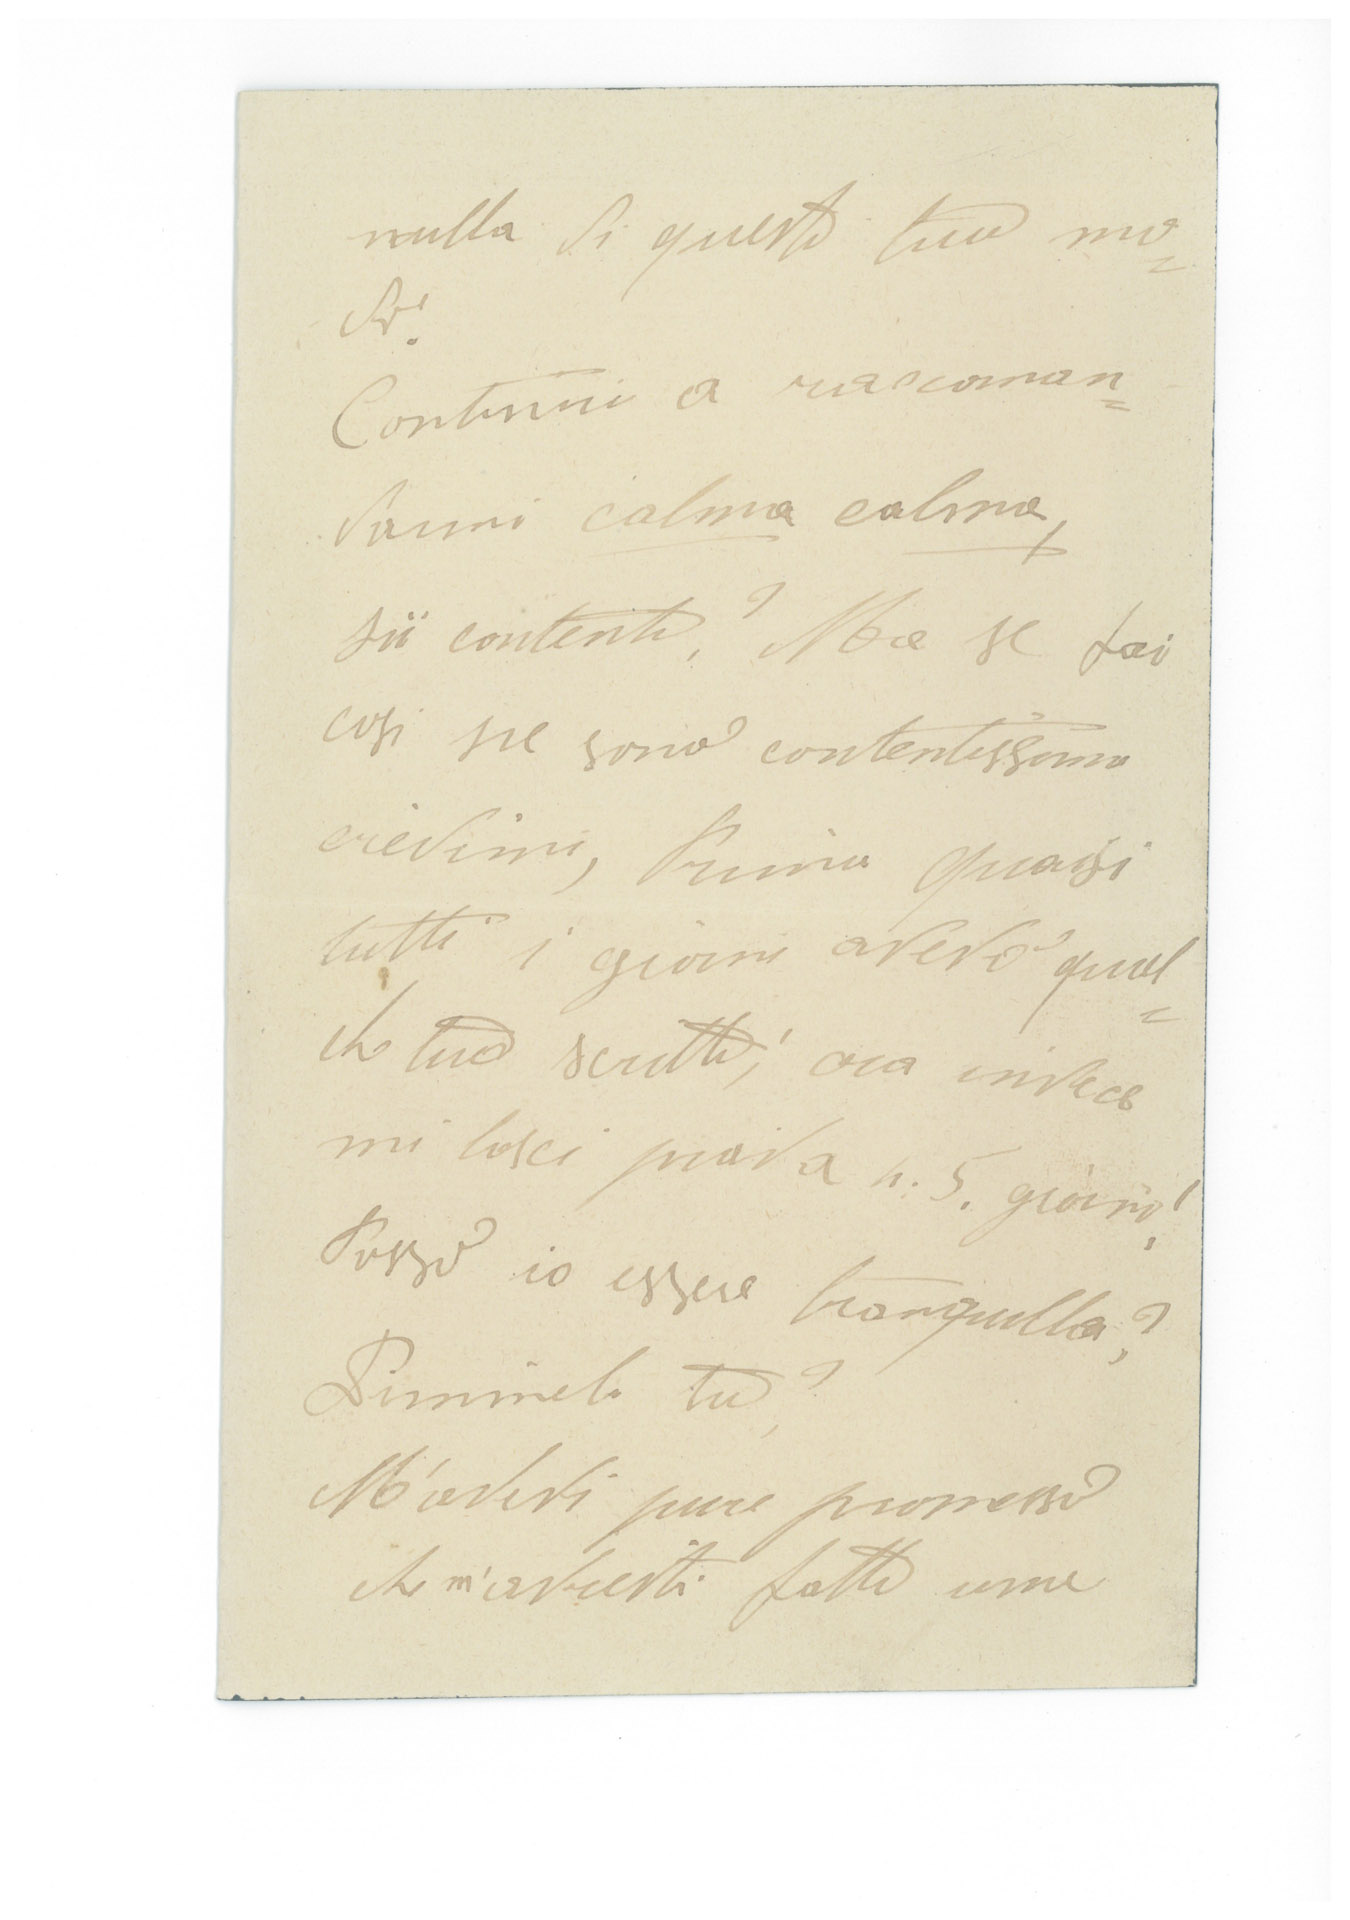 nulla di questo tuo mo=
do!
Continui a raccoman=
darmi calma calma,
sii contento? Ma se fai
cosi ne sono contentissima
credimi, Prima quasi
tutti i giorni avevo qual=
che tuo scritto, ora invece
mi lasci priva n. 5. giorni!
Posso io essere tranquilla?
Dimmelo tu?
M'avevi pure promesso
che m'avresti fatto una